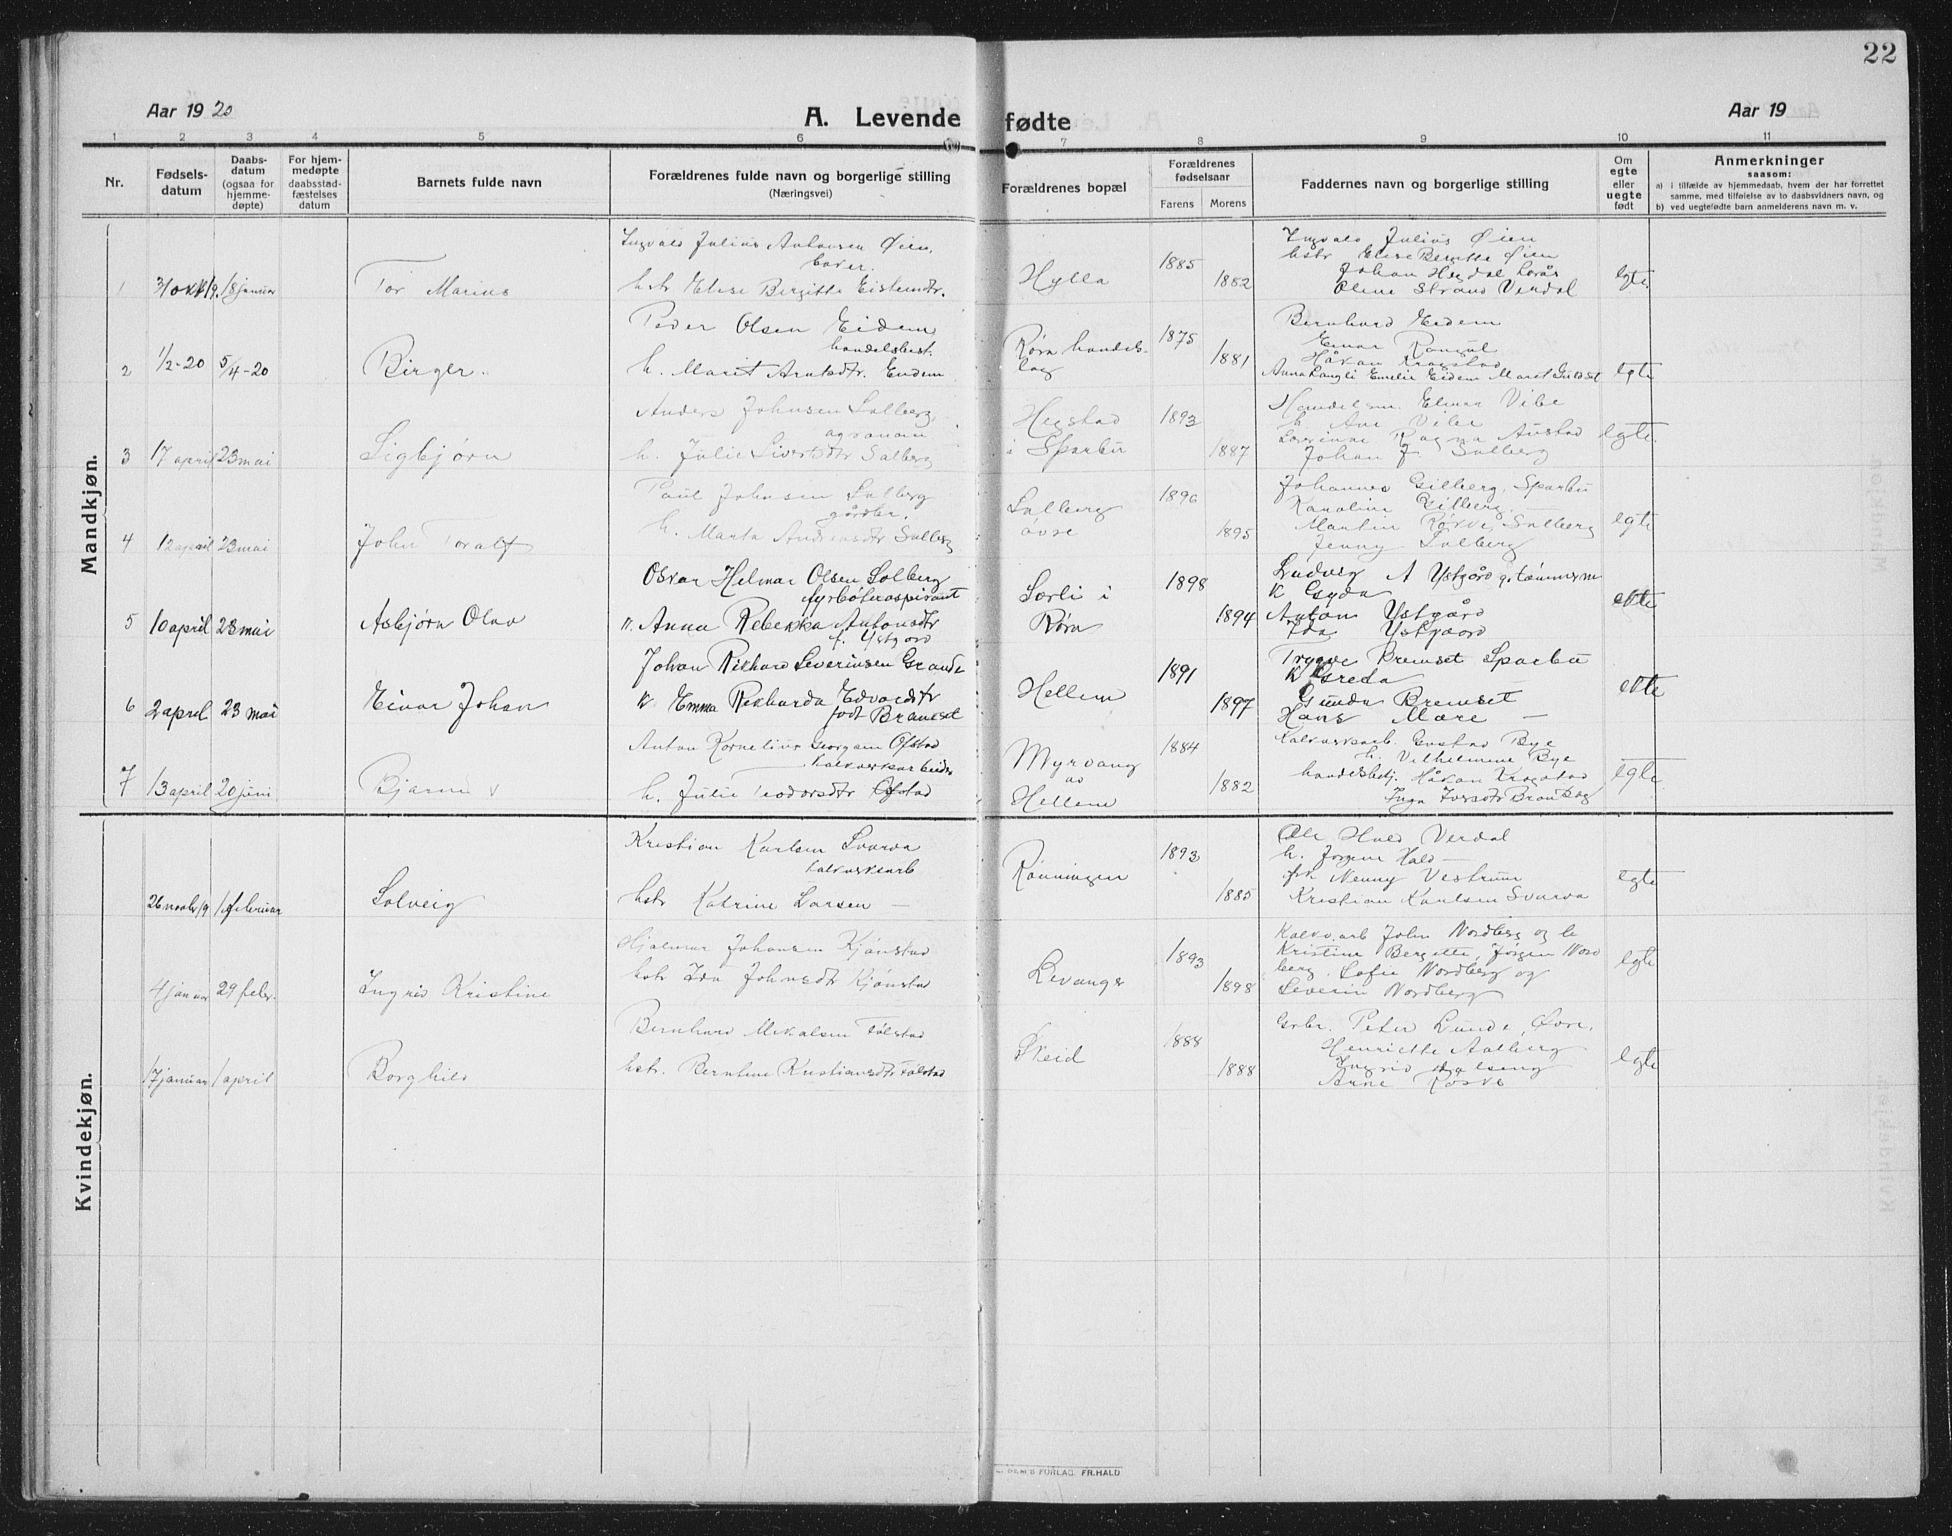 22
Aar 1920
A. Levende fødte
Aar 19
1 2 3 4 5 6 7 8 9 10 11
Nr.
Fødsels-
datum
Daabs-
datum
(ogsaa for
hjemme-
døpte)
For hjem-
medøpte
daabsstad-
fæstelses
datum
Barnets fulde navn
Forældrenes fulde navn og borgerlige stilling
(Næringsvei)
Forældrenes bopæl
Forældrenes
fødselsaar
Farens Morens
Faddernes navn og borgerlige stilling
Om
egte
eller
uegte
født
Anmerkninger
saasom:
a) i tilfælde av hjemmedaab, hvem der har forrettet
samme, med tilføielse av to daabsvidners navn, og
b) ved uegtefødte barn anmelderens navn m. v.
Mandkjøn.
Ingvald Julius Antonsen Øien,
1 31 okt 19. 18 januar Tor Marius
hstr Elise Bergitte Eistensdtr.
Hylla
1885
1882
Ingvald Julius Øien
hstr Elise Bergitte Øien
Johan Hegdal
Oline Strand Verdal
Egte.
Peder Olsen Eidem
handelsbest.
2 1/2-20 5/4-20 Birger.
h. Marit Arntsdtr. Eidem
Røra handels-
lag
1875
1881
Bernhard Eidem
Einar
Håkan Kragstad
Anna Langli Emelie Eidem Marit
Egte
Anders Johnsen Salberg,
agronom
3 17 april 23 mai Sigbjørn
h. Julie Sivertsdtr Salberg
Hegstad
i Sparbu
1893
1887
Elmar Vibe
h. Vibe
Ragna Austad
Johan J. Salberg
Egte.
Paul Johnsen Salberg
gårdbr.
4 12 april 23 mai John Toralf
h. Marta Andreasdtr Salberg
Salberg
øvre
1896
1895
Johannes Gilberg, Sparbu
Karoline Gilberg
Martin Røske, Salberg
Jenny Salberg
Egte
Oskar Helmar Olsen Solberg
fyrbøteraspirant
5 10 april 23 mai Asbjørn Olav
K. Anna Rebekka Antonsdtr
f. Ystgård
Sørli i
Røra
1898
1894
Ludvig A Ystgård g. tømmerm
K Gyda
Anton Ystgård
Ida Ystgaard
ekte
Johan Rikhard Severinsen Grande
6 2 april 23 mai Einar Johan
K. Emma Rikharda Edvardsdtr
født Bremset
Hellem
1891
1897
Trygve Bremset Sparbu
K Greda
Gunda Bremset
Hans Mære —
ekte
Anton Kornelius Georgsen Øfstad
kalkverksarbeider
7 13 april 20 juni Bjarne
h. Julie Teodorsdtr Øfstad
Myrvang
av
Hellem
1884
1882
Kalkverksarb. Gustav Bye
h. Vilhelmine Bye
handelsbetj. Håkan Kragstad
Inga
Egte
Kvindekjøn.
Kristian Karlsen Svarva
kalkverksarb
26 novbr 19 1 februar Solveig
hstr Katrine Larsen —
Rønningen
1893
1885
Ole Hald Verdal
h. Jørgine Hald —
frk Nenny Vestrum
Kristian Karlsen Svarva
Egte
Hjalmar Johansen Kjønstad
4 januar 29 febr. Ingrid Kristine
hstr Ida Johnsdtr Kjønstad
Levanger
1893
1898
Kalkv.arb John Nordberg og h
Kristine Bergitte, Jørgen Nord
berg. Sofie Nordberg og
Severin Nordberg
Egte
Bernhard Mikalsen Tølstad
17 januar 1 april Borghild
hstr. Berntine Kristiansdtr Tølstad
Skeid
1888
1888
Grbr. Peter Lunde, Øvre.
Henriette Aalberg
Ingrid
Arne Røske
Egte
FORLAG. FR. HALD